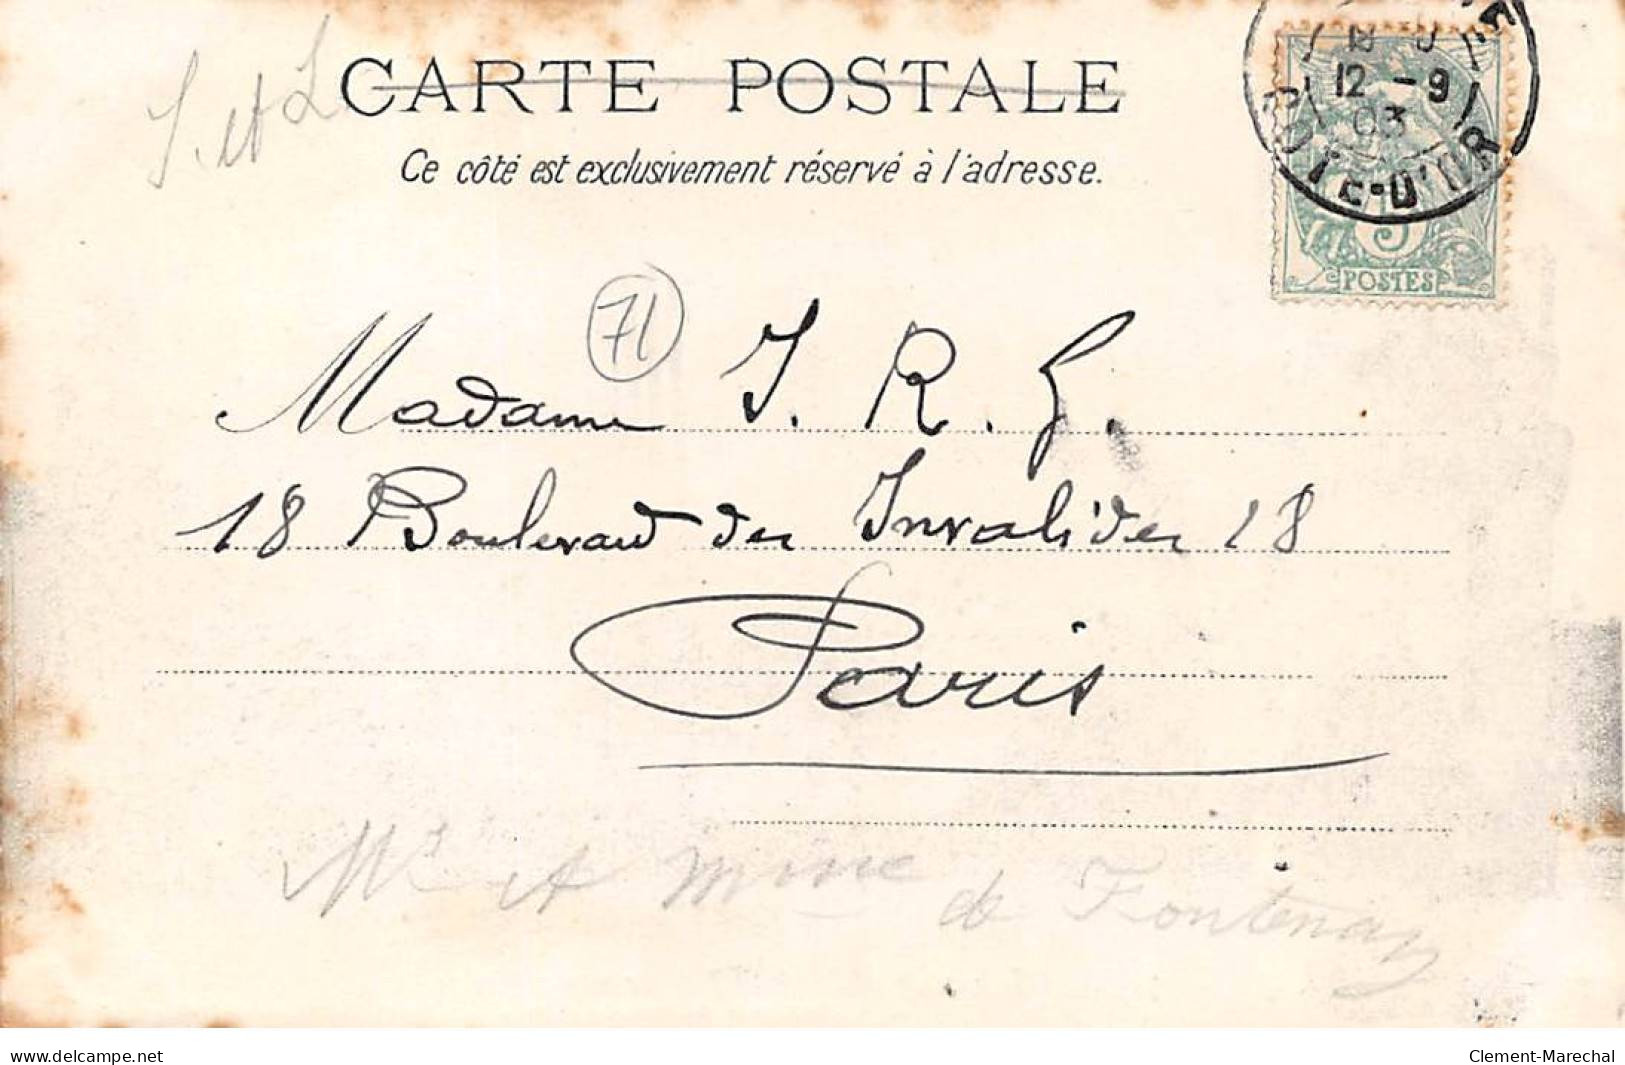 S. et L
CARTE POSTALE
Ce côté est exclusivement réservé à l'adresse.
12 - 9
03
CÔTE-D'OR
5
POSTES
71
Madame J. R. G.
18 Boulevard des Invalides 18
Paris
Mr et Mme de Fontenay
delcampe.net
Clement-Marechal